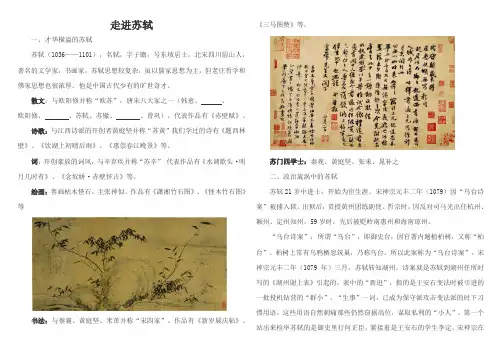 走进苏轼
一、才华横溢的苏轼
苏轼（1036——1101），名轼，字子瞻，号东坡居士，北宋四川眉山人，
著名的文学家，书画家。苏轼思想较复杂，虽以儒家思想为主，但老庄哲学和
佛家思想也很浓厚。他是中国古代少有的旷世奇才。
散文：与欧阳修并称“欧苏”，唐宋八大家之一（韩愈、______、
欧阳修、______、苏轼、苏辙、______、曾巩），代表作品有《赤壁赋》。
诗歌：与江西诗派的开创者黄庭坚并称“苏黄”我们学过的诗有《题西林
壁》、《饮湖上初晴后雨》、《惠崇春江晚景》等。
词：开创豪放的词风，与辛弃疾并称“苏辛” 代表作品有《水调歌头·明
月几时有》、《念奴娇·赤壁怀古》等。
绘画：喜画枯木怪石，主张神似。作品有《潇湘竹石图》、《怪木竹石图》
等
书法：与蔡襄、黄庭坚、米芾并称“宋四家”。作品有《新岁展庆帖》、
《三马图赞》等。
苏门四学士：秦观、黄庭坚、张耒、晁补之
二、政治漩涡中的苏轼
苏轼21岁中进士，开始为宦生涯。宋神宗元丰二年（1079）因“乌台诗
案”被捕入狱。出狱后，贬授黄州团练副使。哲宗时，因反对司马光出任杭州、
颍州、定州知州。59岁时，先后被贬岭南惠州和海南琼州。
“乌台诗案”，所谓“乌台”，即御史台，因官署内遍植柏树，又称“柏
台”。柏树上常有乌鸦栖息筑巢，乃称乌台。所以此案称为“乌台诗案”。宋
神宗元丰二年（1079年）三月，苏轼转知湖州，诗案就是苏轼到湖州任所时
写的《湖州谢上表》引起的。表中的“新进”，指的是王安石变法时候引进的
一批投机钻营的“群小”。“生事”一词，已成为保守派攻击变法派的时下习
惯用语。这些用语自然刺痛那些仍然窃据高位，谋取私利的“小人”。第一个
站出来检举苏轼的是御史里行何正臣，紧接着是王安石的学生李定。宋神宗在